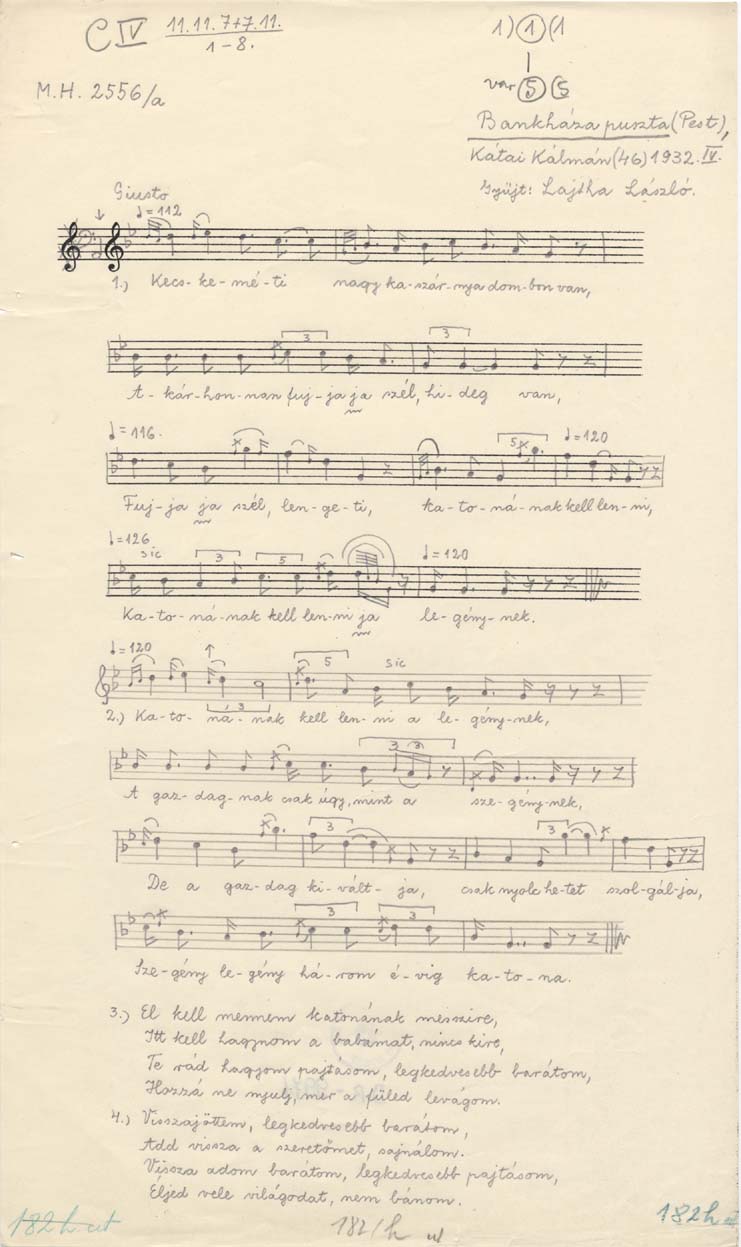 C IV 11.11.7+7.11.
1-8.
1) 1 (1
var 5 5
M.H. 2556/a
Bankháza puszta (Pest),
Kátai Kálmán (46) 1932. IV.
Gyüjt: Lajtha László.
Giusto
♩= 112
1.) Kecs-ke-mé-ti nagy ka-szár-nya dom-bon van,
3 3
A-kár-hon-nan fuj-ja ja szél, hi-deg van,
♩= 116. 5 ♩= 120
Fuj-ja ja szél, len-ge-ti, ka-to-ná-nak kell len-ni,
♩= 126 ♩= 120
sic 3 5
Ka-to-ná-nak kell len-ni ja le-gény-nek.
♩= 120 5 sic
3
2.) Ka-to-ná-nak kell len-ni a le-gény-nek,
3 3
A gaz-dag-nak csak úgy, mint a sze-gény-nek,
3 3
De a gaz-dag ki-vált-ja, csak nyolc he-tet szol-gál-ja,
3 3
Sze-gény le-gény há-rom é-vig ka-to-na.
3.) El kell mennem katonának messzire,
Itt kell hagynom a babámat, nincs kire,
Te rád hagyom pajtásom, legkedvesebb barátom,
Hozzá ne nyulj, mer a füled levágom.
4.) Visszajöttem, legkedvesebb barátom,
Add vissza a szeretőmet, sajnálom.
Vissza adom barátom, legkedvesebb pajtásom,
Éljed vele világodat, nem bánom.
182 h 182/h 182 h